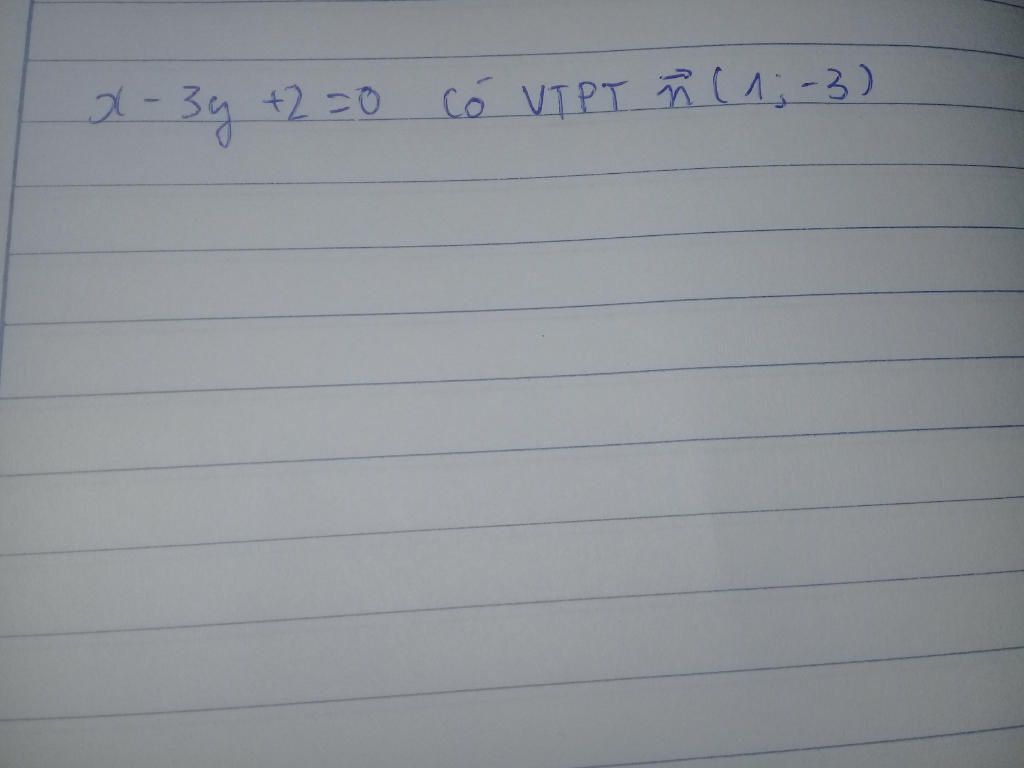 x - 3y + 2 = 0 có VTPT n⃗ (1; -3)